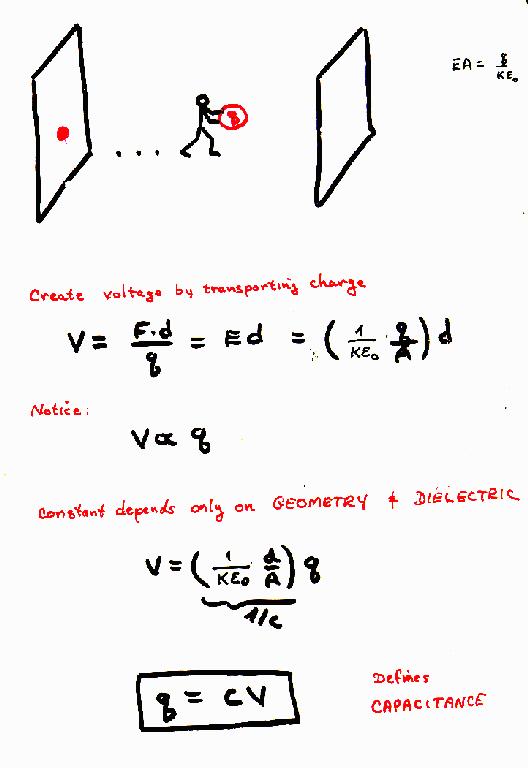 EA = q/KE₀
q
Create voltage by transporting charge
V = F·d/q = Ed = (1/KE₀ q/A) d
Notice:
V ∝ q
Constant depends only on GEOMETRY & DIELECTRIC
V = (1/KE₀ d/A) q
1/C
q = CV
Defines
CAPACITANCE